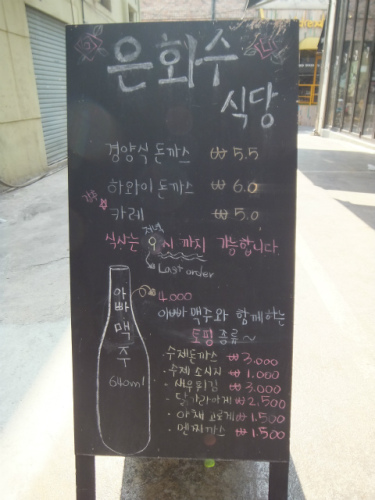 은화수
식당
경양식 돈까스 ₩ 5.5
하와이 돈까스 ₩ 6.0
카레 ₩ 5.0
저녁
식사는 9시 까지 가능합니다.
Last order
아빠맥주
640ml
4,000
아빠맥주와 함께하는
토핑 종류~
·수제돈까스 ₩3,000
·수제 소시지 ₩1,000
·새우튀김 ₩3,000
·닭가라아게 ₩2,500
·야채 고로케 ₩1,500
·멘찌까스 ₩1,500